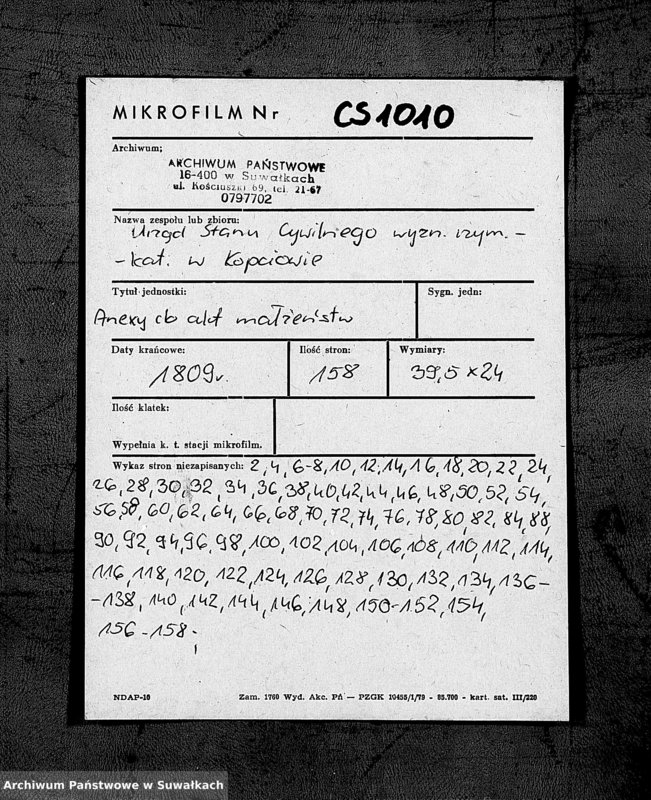 MIKROFILM Nr CS1010
Archiwum;
ARCHIWUM PAŃSTWOWE
16-400 w Suwałkach
ul. Kościuszki 69, tel. 21-67
0797702
Nazwa zespołu lub zbioru:
Urząd Stanu Cywilnego wyzn. rzym.-
-kat. w Kopciowie
Tytuł jednostki: Sygn. jedn:
Anexy do akt małżeństw
Daty krańcowe: Ilość stron: Wymiary:
1809r. 158 39,5 x 24
Ilość klatek:
Wypełnia k. t. stacji mikrofilm.
Wykaz stron niezapisanych: 2, 4, 6-8, 10, 12, 14, 16, 18, 20, 22, 24,
26, 28, 30, 32, 34, 36, 38, 40, 42, 44, 46, 48, 50, 52, 54,
56, 58, 60, 62, 64, 66, 68, 70, 72, 74, 76, 78, 80, 82, 84, 88,
90, 92, 94, 96, 98, 100, 102, 104, 106, 108, 110, 112, 114,
116, 118, 120, 122, 124, 126, 128, 130, 132, 134, 136-
-138, 140, 142, 144, 146, 148, 150-152, 154,
156-158.
NDAP-10 Zam. 1760 Wyd. Akc. Pń — PZGK 10455/I/79 - 85.700 - kart. sat. III/220
Archiwum Państwowe w Suwałkach